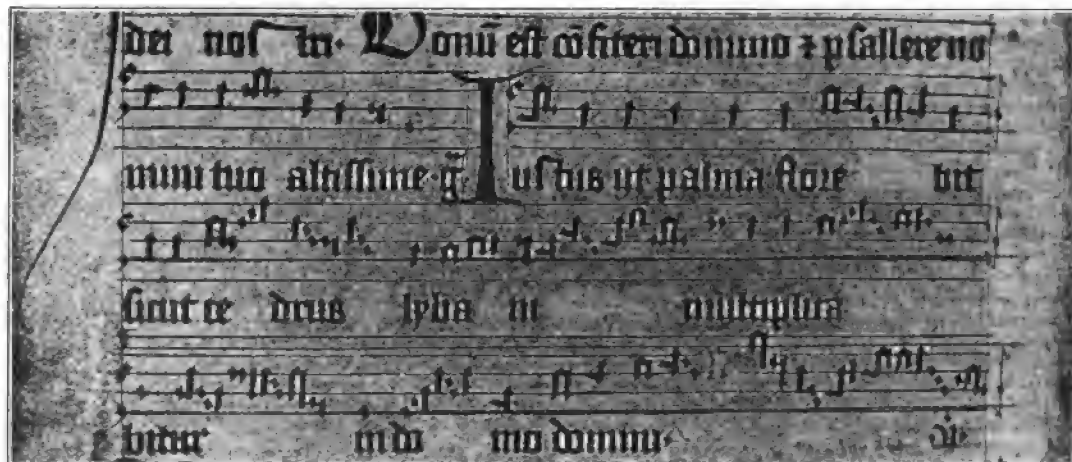 dei nostri· Bonū est cōfiteri domino ⁊ psallere no
mini tuo altissime g̃ Iustus ut palma flore bit
sicut ce drus lyba ni multiplica
bitur in do mo domini·